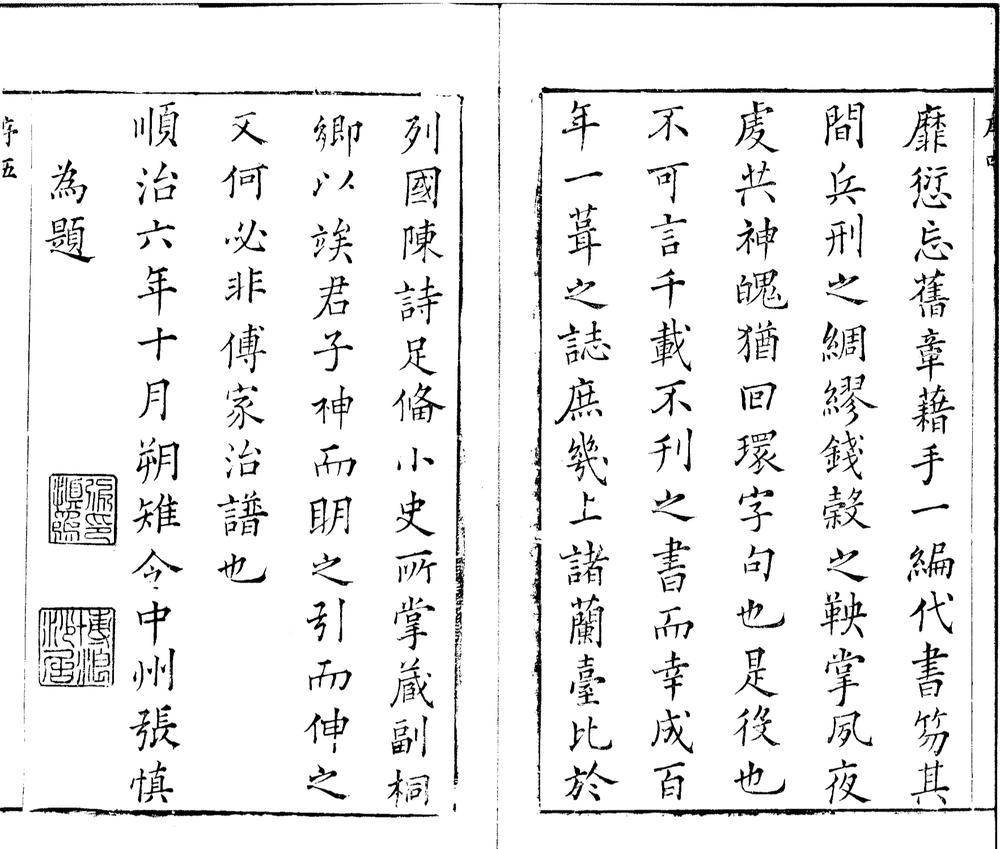 靡愆忘舊章藉手一編代書笏其
間兵刑之綢繆錢穀之鞅掌夙夜
處共神魄猶回環字句也是役也
不可言千載不刋之書而幸成百
年一葺之誌庶幾上諸蘭臺比於
列國陳詩足偹小史所掌藏副桐
鄉以竢君子神而明之引而伸之
又何必非傅家治譜也
順治六年十月朔雉令中州張慎
為題
序五